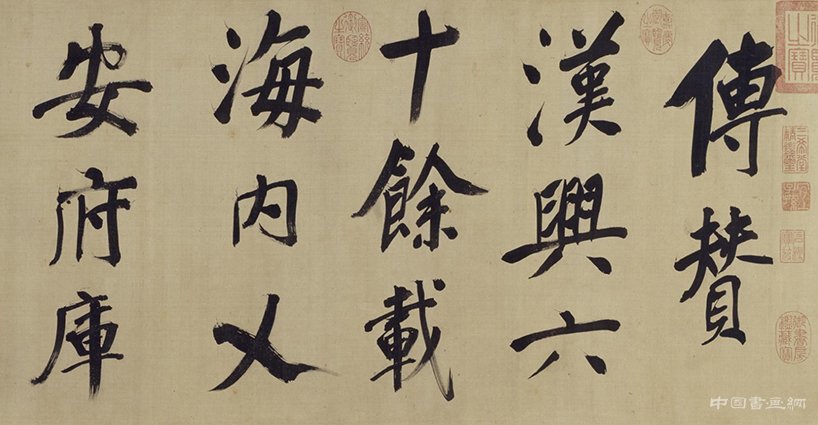 傳贊
漢興六
十餘載
海內乂
安府庫
中国書画網